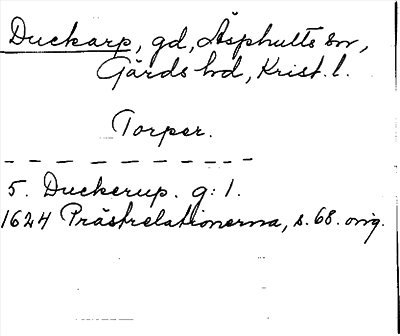 Duckarp, gd, Äsphults sn,
Gärds hd, Krist. l.
Torper.
5. Duckerup. g: 1.
1624 Prästrelationerna, s. 68. orig.